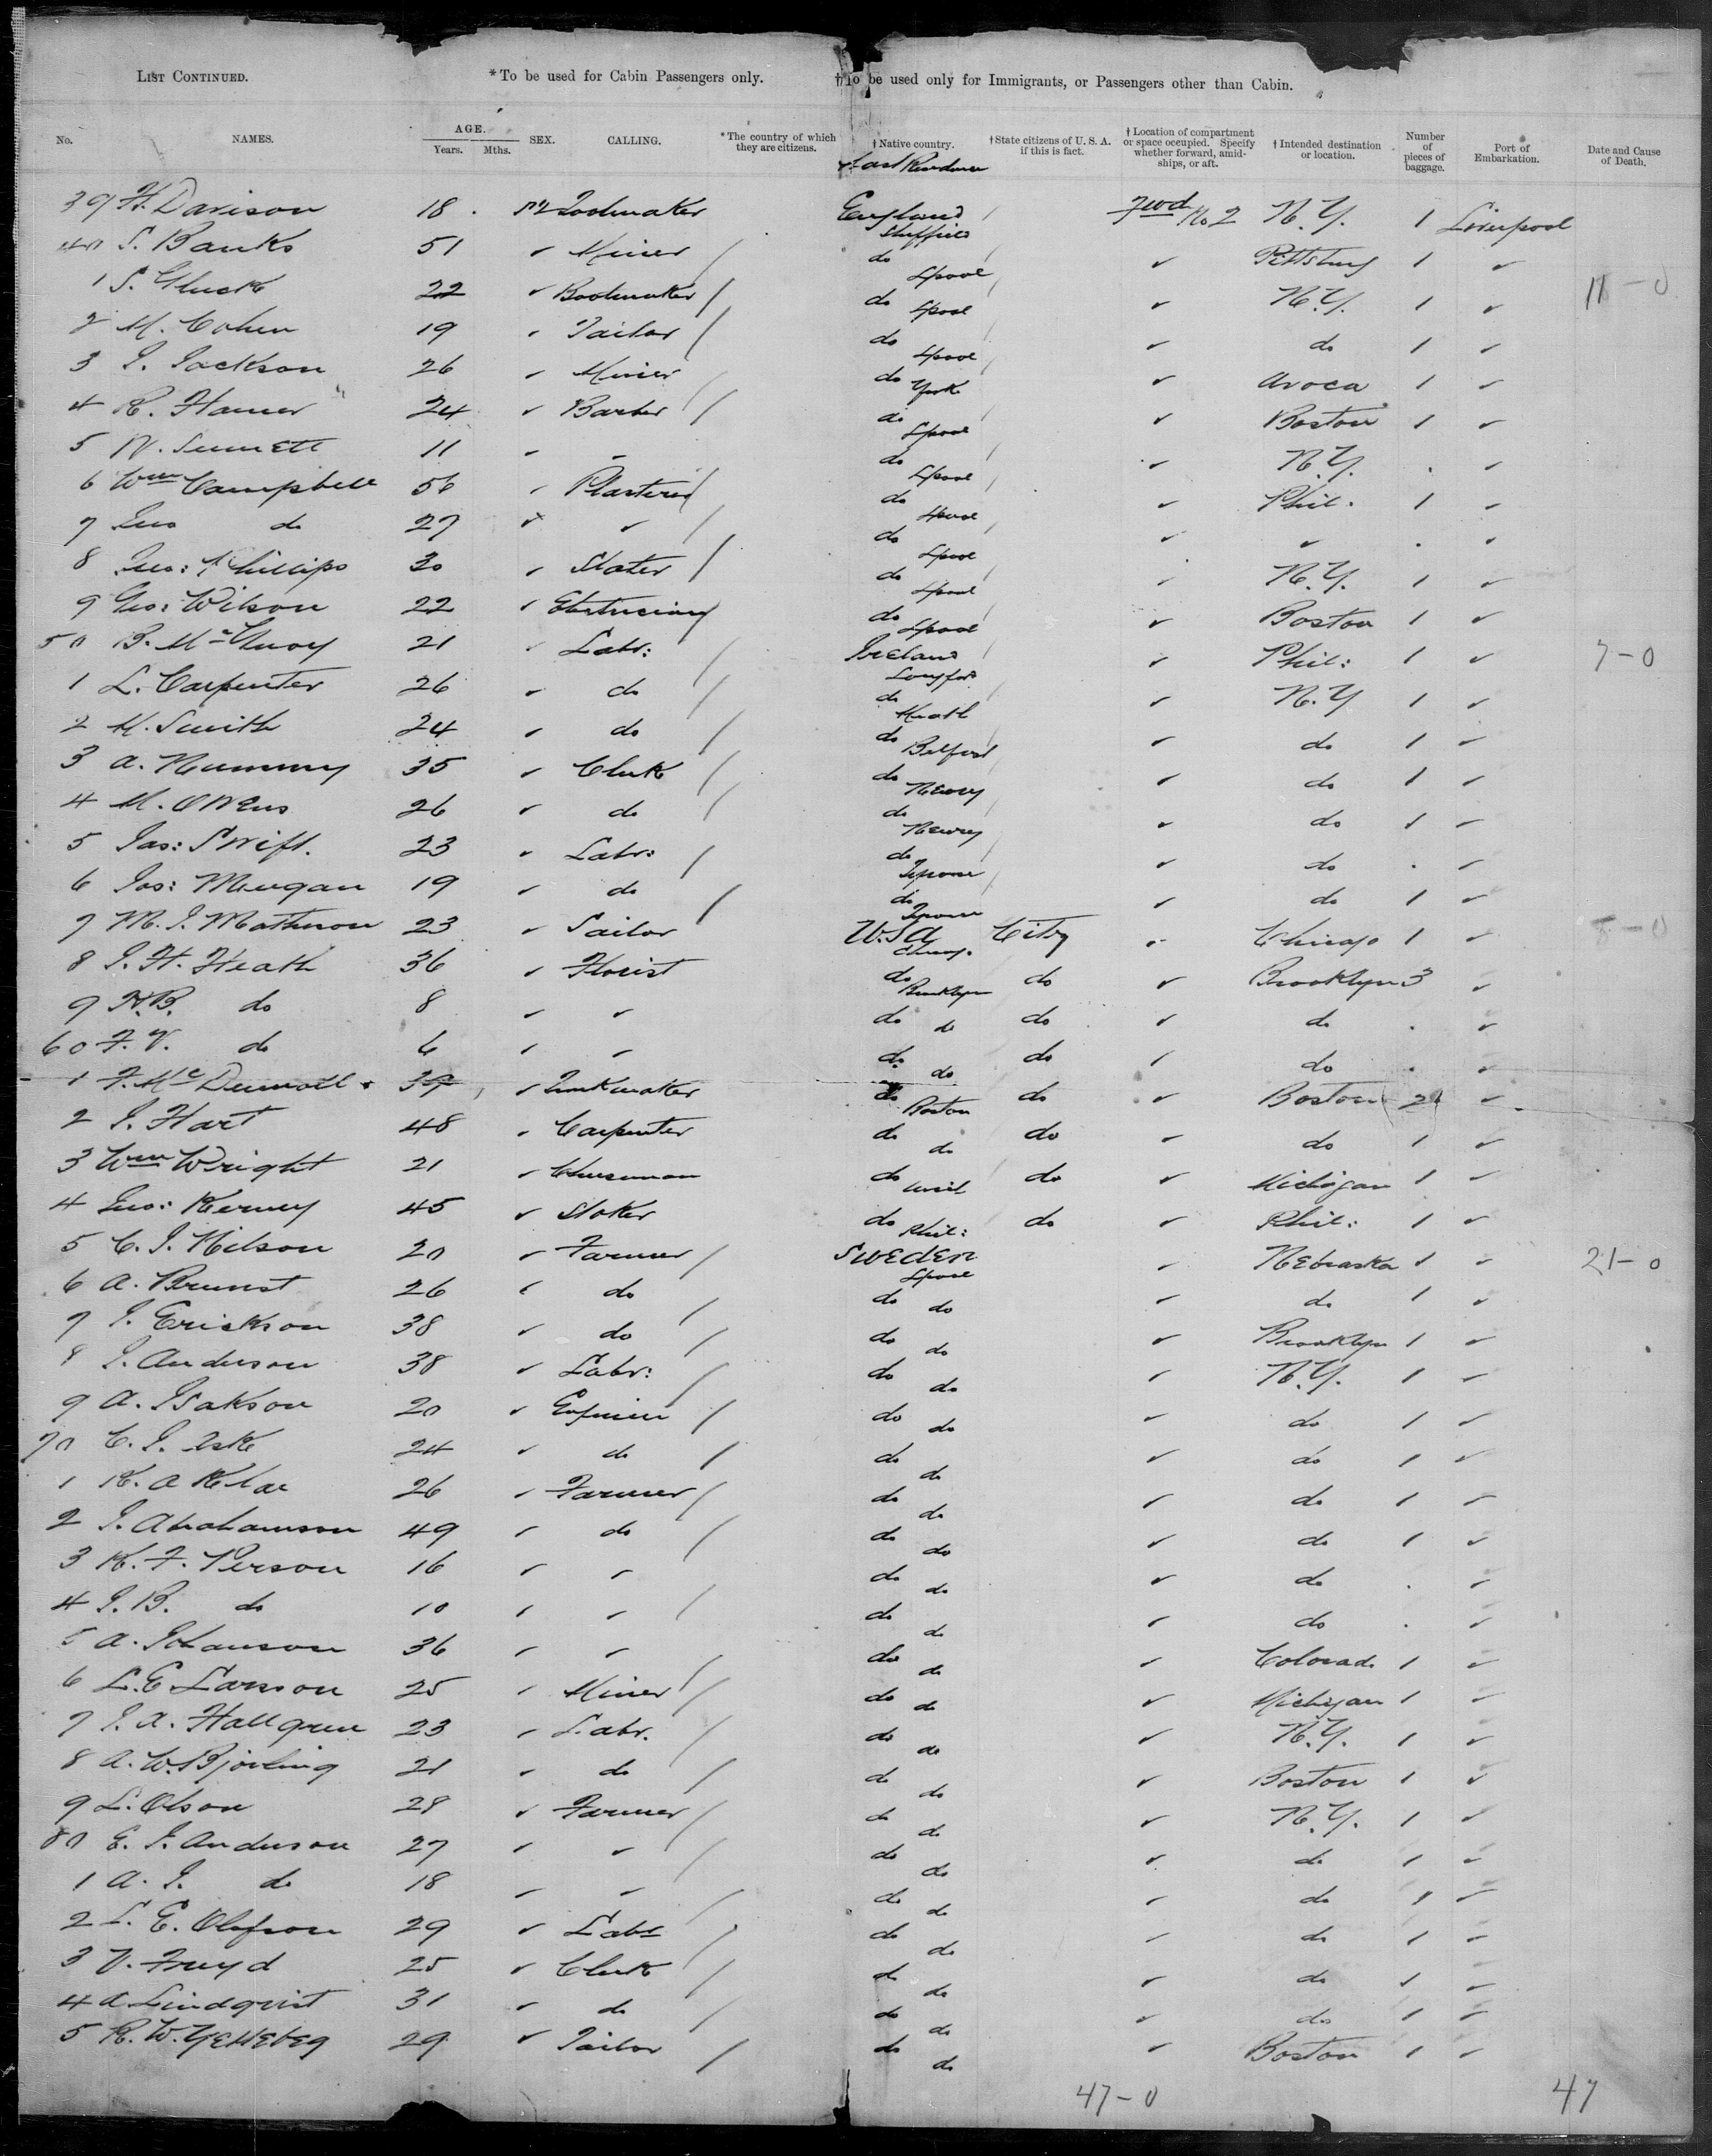 LIST CONTINUED. *To be used for Cabin Passengers only. †To be used only for Immigrants, or Passengers other than Cabin.
No. NAMES. AGE. Years. Mths. SEX. CALLING. *The country of which they are citizens. †Native country. †State citizens of U. S. A. if this is fact. †Location of compartment or space occupied. Specify whether forward, amidships, or aft. †Intended destination or location. Number of pieces of baggage. Port of Embarkation. Date and Cause of Death.
Last Residence
39 H. Davison 18 Toolmaker England Sheffield Fwd No 2 N.Y. 1 Liverpool
40 S. Banks 51 Miner do Lpool Pittsburg 1
1 S. Gluck 22 Bootmaker do Lpool N.Y. 1 11-0
2 M. Cohen 19 Tailor do Lpool do 1
3 J. Jackson 26 Miner do York Avoca 1
4 R. Hamer 24 Barber do Lpool Boston 1
5 W. 11 do Lpool N.Y.
6 Wm Campbell 56 Plasterer do Lpool Phil. 1
7 Jno do 27 do Lpool
8 Jno: Phillips 30 Slater do Lpool N.Y. 1
9 Geo: Wilson 22 do Lpool Boston 1
50 B. 21 Labr: Ireland Longford Phil: 1 7-0
1 L. Carpenter 26 do do Meath N.Y 1
2 M. Smith 24 do do Belfast do 1
3 A. 35 Clerk do Newry do 1
4 M. Owens 26 do do Newry do 1
5 Jas: Swift. 23 Labr: do do
6 Jos: 19 do do do 1
7 M. J. 23 Sailor U.S.A Chicago Citz Chicago 1
8 J. H. Heath 36 Florist do Brooklyn do Brooklyn 3
9 H.B. do 8 do do do do
60 F. V. do 6 do do do do
1 F. Mc 39 do Boston do Boston 2
2 J. Hart 48 Carpenter do do do do 1
3 Wm Wright 21 do do Michigan 1
4 Jno: Kerney 45 Stoker do Phil: do Phil: 1
5 C. J. Nilson 20 Farmer Sweden Lpool Nebraska 1 21-0
6 A. 26 do do do do 1
7 J. Erickson 38 do do do Brooklyn 1
8 J. Anderson 38 Labr: do do N.Y. 1
9 A. Isakson 20 do do do 1
70 C. J. 24 do do do do 1
1 K. A 26 Farmer do do do 1
2 J. Abrahamson 49 do do do do 1
3 K. F. Person 16 do do do
4 J. B. do 10 do do do
5 A. Johanson 36 do do Colorado 1
6 L. E Larsson 25 Miner do do Michigan 1
7 J. A. Hallgren 23 Labr. do do N.Y. 1
8 A. W. Bjorling 21 do do do Boston 1
9 L. Olson 28 Farmer do do N.Y. 1
80 E. J. Anderson 27 do do do 1
1 A. J. do 18 do do do 1
2 L. E. Olofson 29 Labr do do do 1
3 V. 25 Clerk do do do 1
4 A Lindqvist 31 do do do do 1
5 R. W. 29 Tailor do do Boston 1
47-0 47